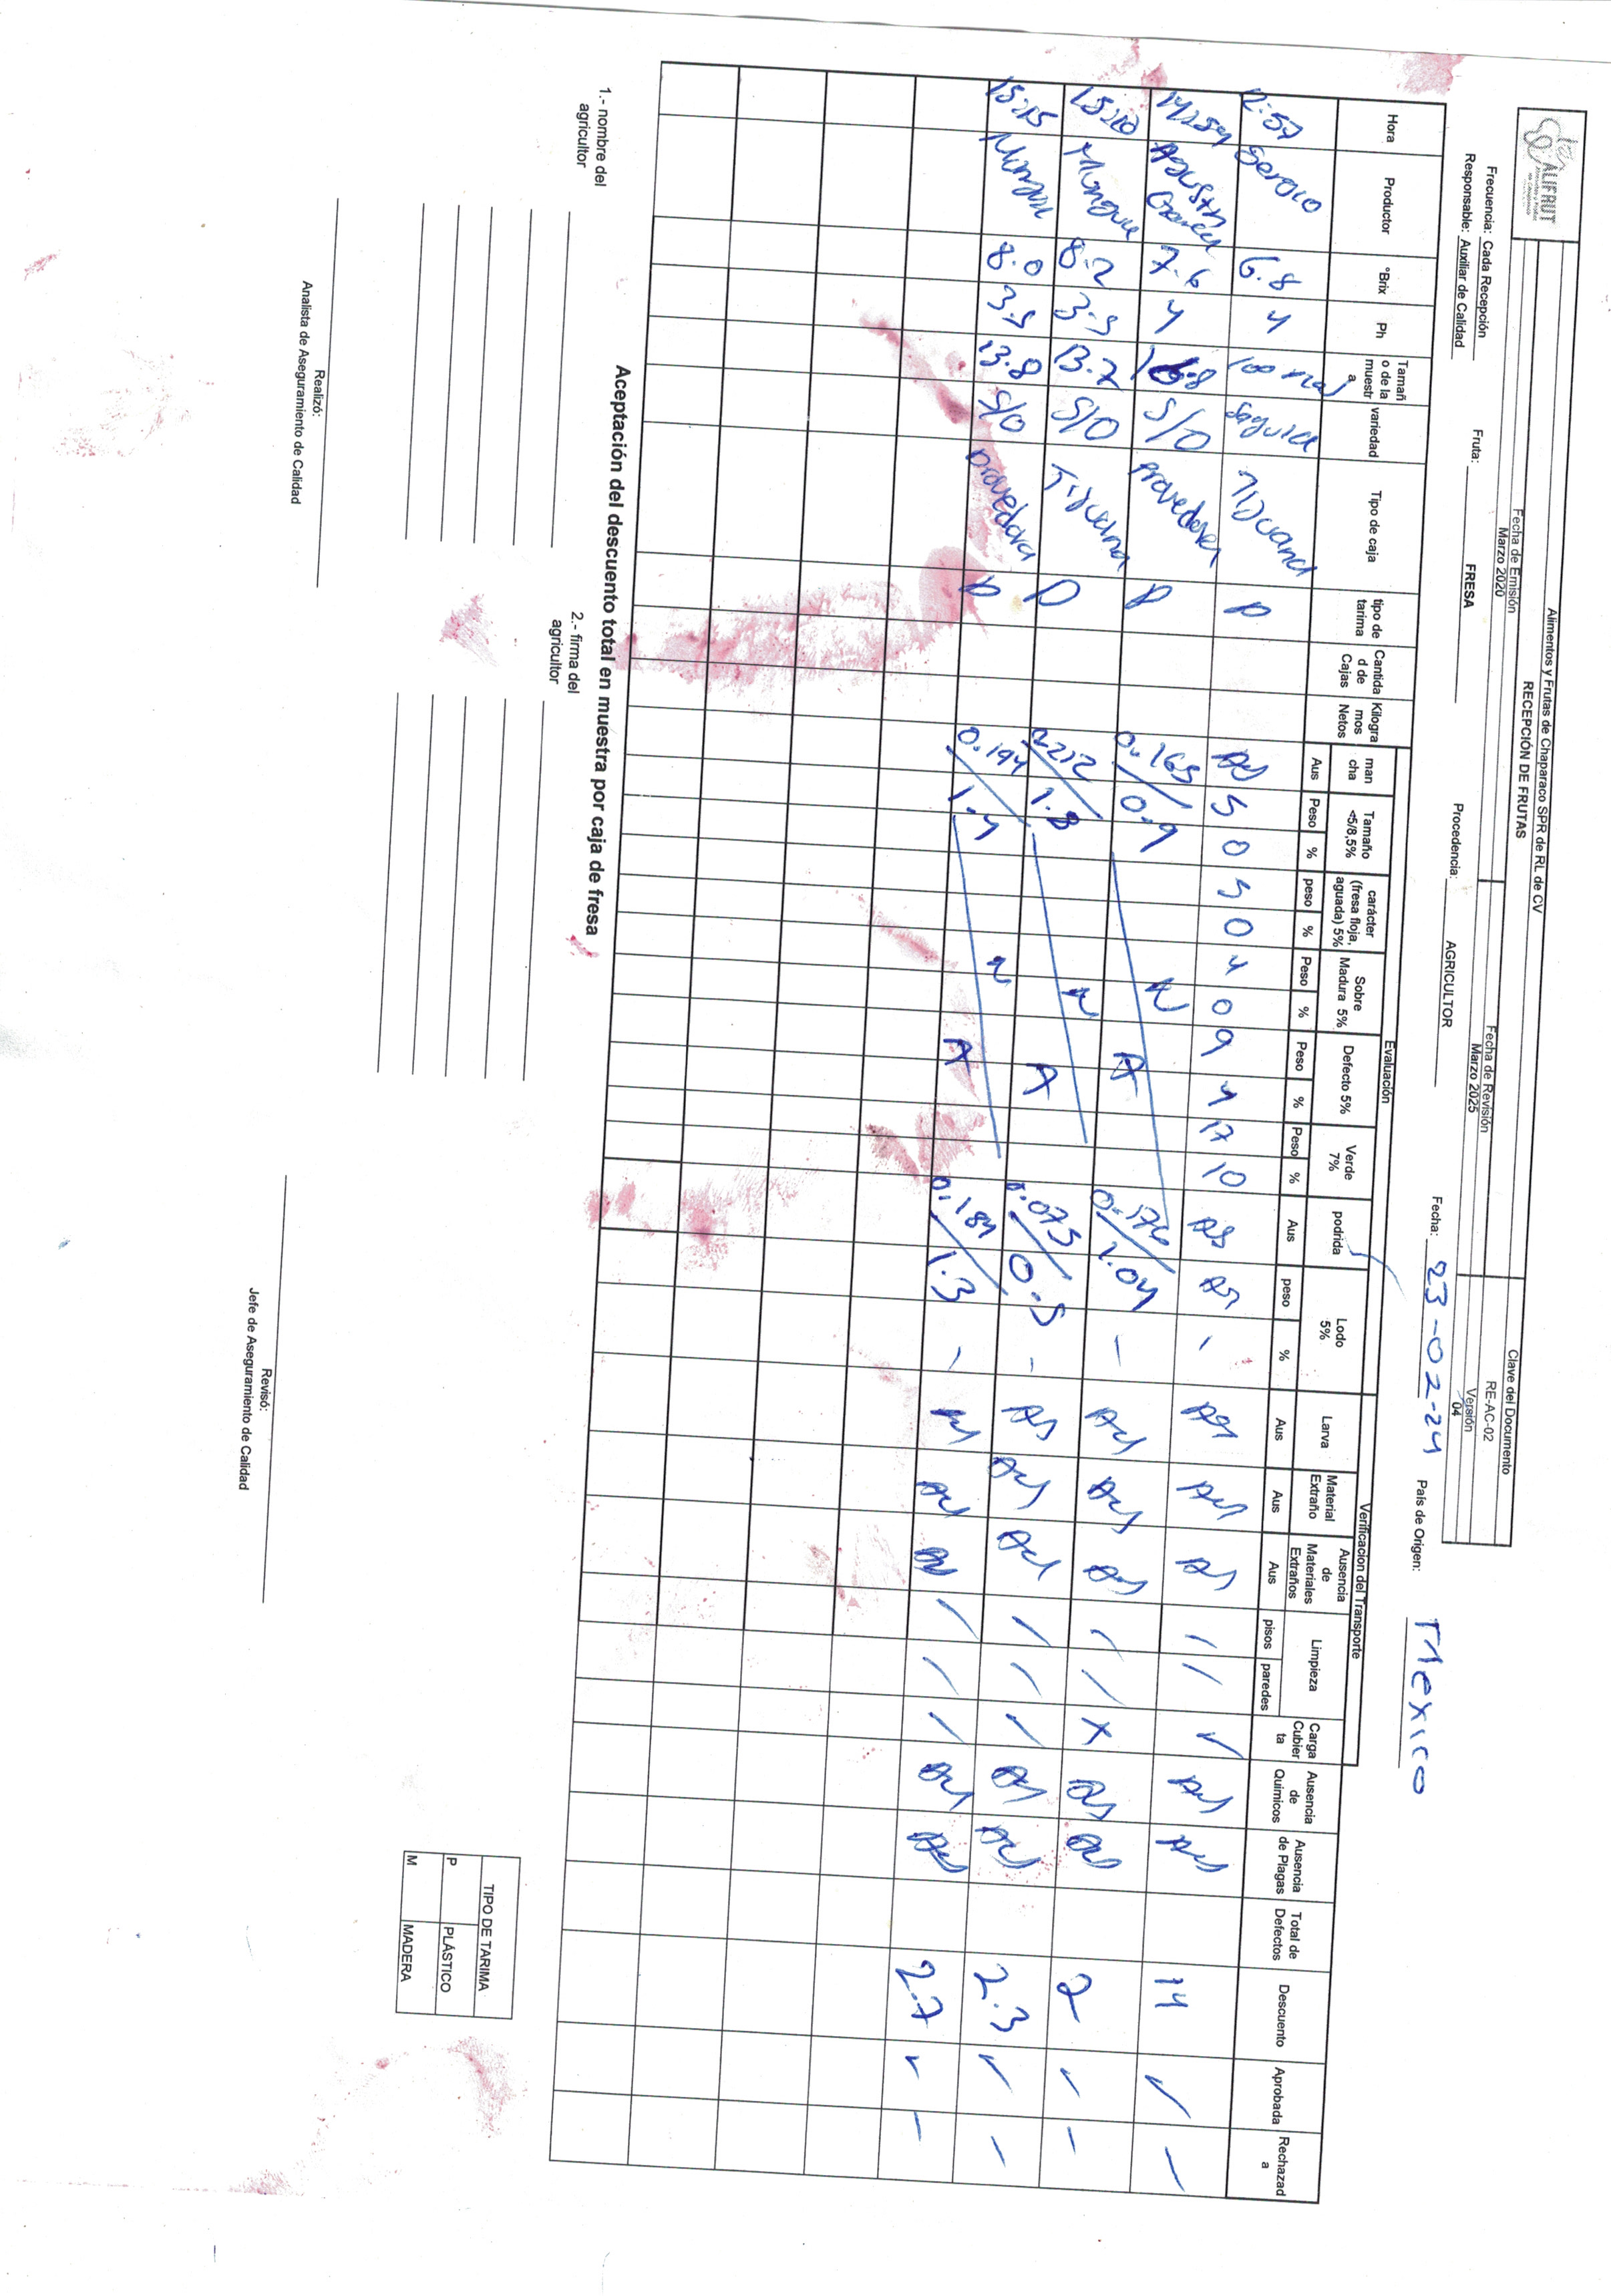 ALIFRUT
Alimentos y Frutas de Chaparaco SPR de RL de CV
RECEPCIÓN DE FRUTAS
Fecha de Emisión
Marzo 2020
Fecha de Revisión
Marzo 2025
Clave del Documento
RE-AC-02
Versión
04
Frecuencia: Cada Recepción
Responsable: Auxiliar de Calidad
Fruta: FRESA
Procedencia: AGRICULTOR
Fecha: 23-02-24
País de Origen: Mexico
Evaluación
Verificacion del Transporte
Hora Productor °Brix Ph Tamaño de la muestra variedad Tipo de caja tipo de tarima Cantidad de Cajas Kilogramos Netos mancha Tamaño <5/8,5% carácter (fresa floja, aguada) 5% Sobre Madura 5% Defecto 5% Verde 7% podrida Lodo 5% Larva Material Extraño Ausencia de Materiales Extraños Limpieza Carga Cubierta Ausencia de Quimicos Ausencia de Plagas Total de Defectos Descuento Aprobada Rechazada
Aus Peso % peso % Peso % Peso % Peso % Aus peso % Aus Aus Aus pisos paredes
12:57 Sergio 6.8 4 Tijuana P 5 0 5 0 4 0 9 4 17 10 - / / ✓ 14 ✓ -
14:54 Agustin 7.6 4 S/O Provedora P 0.165 / 0.9 N A 0.176 / 1.04 - / / x 2 ✓ -
15:10 8.2 3.5 13.7 S/O Tijuana P 1.8 N A 0.075 / 0.5 - / / / 2.3 ✓ -
15:15 8.0 3.5 13.8 S/O provedora P 0.194 / 1.4 N A 0.184 / 1.3 - / / / 2.7 ✓ -
Aceptación del descuento total en muestra por caja de fresa
1.- nombre del
agricultor
2.- firma del
agricultor
TIPO DE TARIMA
P PLÁSTICO
M MADERA
Realizó:
Analista de Aseguramiento de Calidad
Revisó:
Jefe de Aseguramiento de Calidad